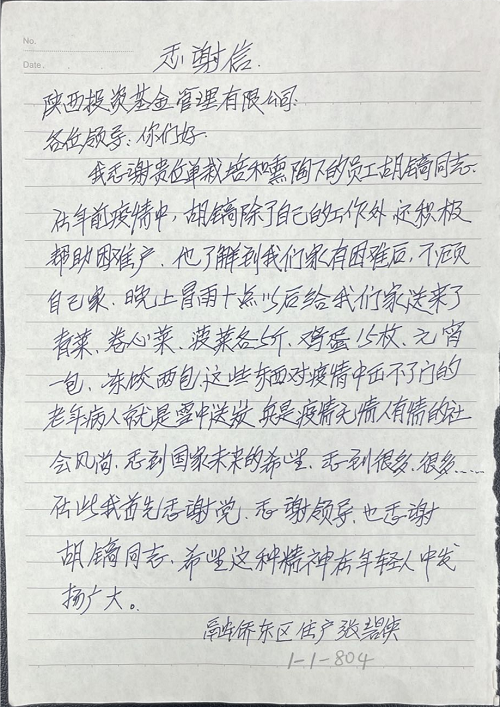 No.
Date.
感谢信.
陕西投资基金管理有限公司:
各位领导: 你们好.
我感谢贵位单栽培和熏陶下的员工胡镝同志.
在年前疫情中, 胡镝除了自己的工作外, 还积极
帮助困难户. 他了解到我们家有困难后, 不顾
自己家. 晚上冒雨十点以后给我们家送来了
青菜、卷心菜、菠菜各5斤、鸡蛋15枚、元宵
一包、冻饺两包, 这些东西对疫情中出不了门的
老年病人就是雪中送炭, 真是疫情无情人有情的社
会风尚. 感到国家未来的希望. 感到很多、很多……
在此我首先感谢党. 感谢领导. 也感谢
胡镝同志. 希望这种精神在年轻人中发
扬广大。
侨东区住户张碧侠
1-1-804